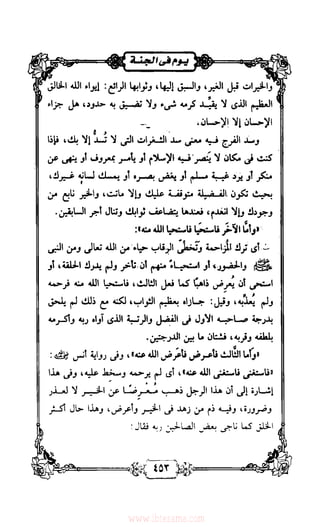 يوم في الجنة
والخيرات قبل الغير، والسبق إليها، وثوابها الرائع: إيواء الله الخالق
العظيم الذى لا يقيد كرمه شىء ولا تضيق به حدوده، هل جزاء
الإحسان إلا الإحسان.
وسد الفرج فيه معنى سد الثغرات التى لا تُسدّ إلا بك، فإذا
كنت فى مكان لا يَنصر فيه الإسلام أو يأمر بمعروف أو ينهى عن
منكر أو يرد غيبة مسلم أو يغض بصره أو يكف لسانه غيرك،
بحيث تكون الفضيلة متوقفة عليك وإلا ماتت، والخير نابع من
وجودك وإلا انعدم، فعندها يتضاعف ثوابك وتنال أجر السابقين.
«وأما الآخر فاستحيا فاستحيا الله منه»:
أى ترك المُزاحمة وتخطى الرقاب حياء من الله تعالى ومن النبى
ﷺ والحضور، أو استحياءً منهم أن تأخر ولم يدرك الحلقة، أو
استحى أن يُعرض ذاهبًا كما فعل الثالث، فاستحيا الله منه فرحمه
ولم يُعذبه، وقيل: جازاه بعظيم الثواب، لكنه مع ذلك لم يلحق
بدرجة صاحبه الأول فى الفضل والرتبة الذى آواه ربه وأكرمه
بلطفه وقربه، فشتان ما بين الدرجتين.
«وأما الثالث فأعرض فأعرض الله عنه»، وفى رواية أنس ﷺ:
«فاستغنى فاستغنى الله عنه»، أى لم يرحمه وسخط عليه، وفى هذا
إشارة إلى أن هذا الرجل ذهب مُعرضًا عن الخير لا لعذر
وضرورة، وفيه ذم من زهد فى الخير وأعرض، وهذا حال أكثر
الخلق كما ناجى بعض الصالحين ربه فقال:
٤٥٣
www.ibtesama.com